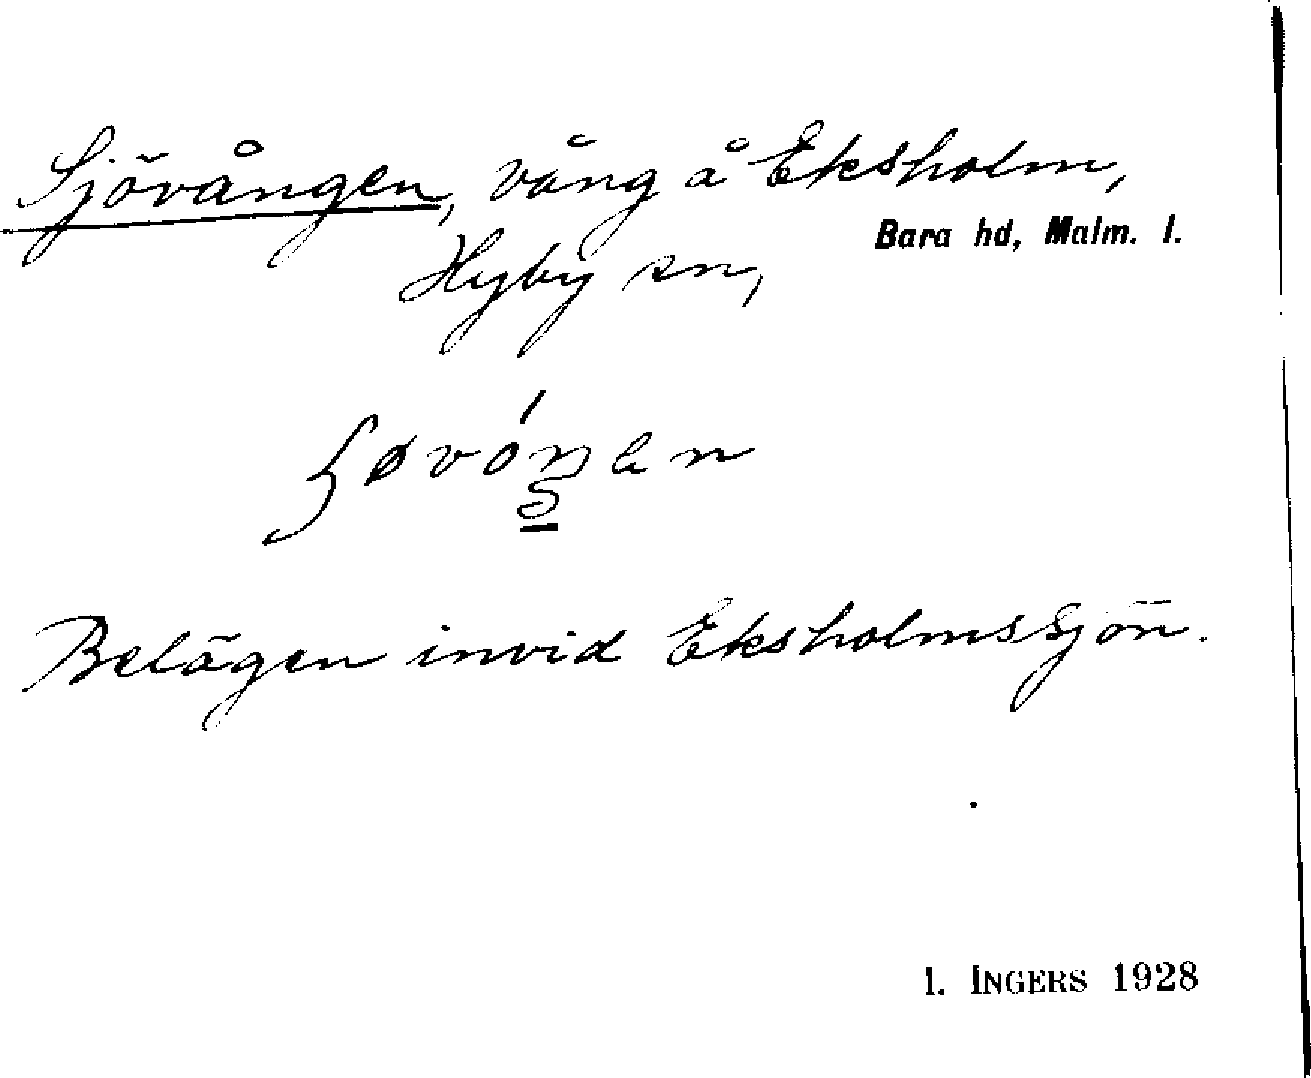 Sjövången, vång å Eksholm,
Bara hd, Malm. l.
Hyby sn,
Belägen invid Eksholmssjön.
I. INGERS 1928